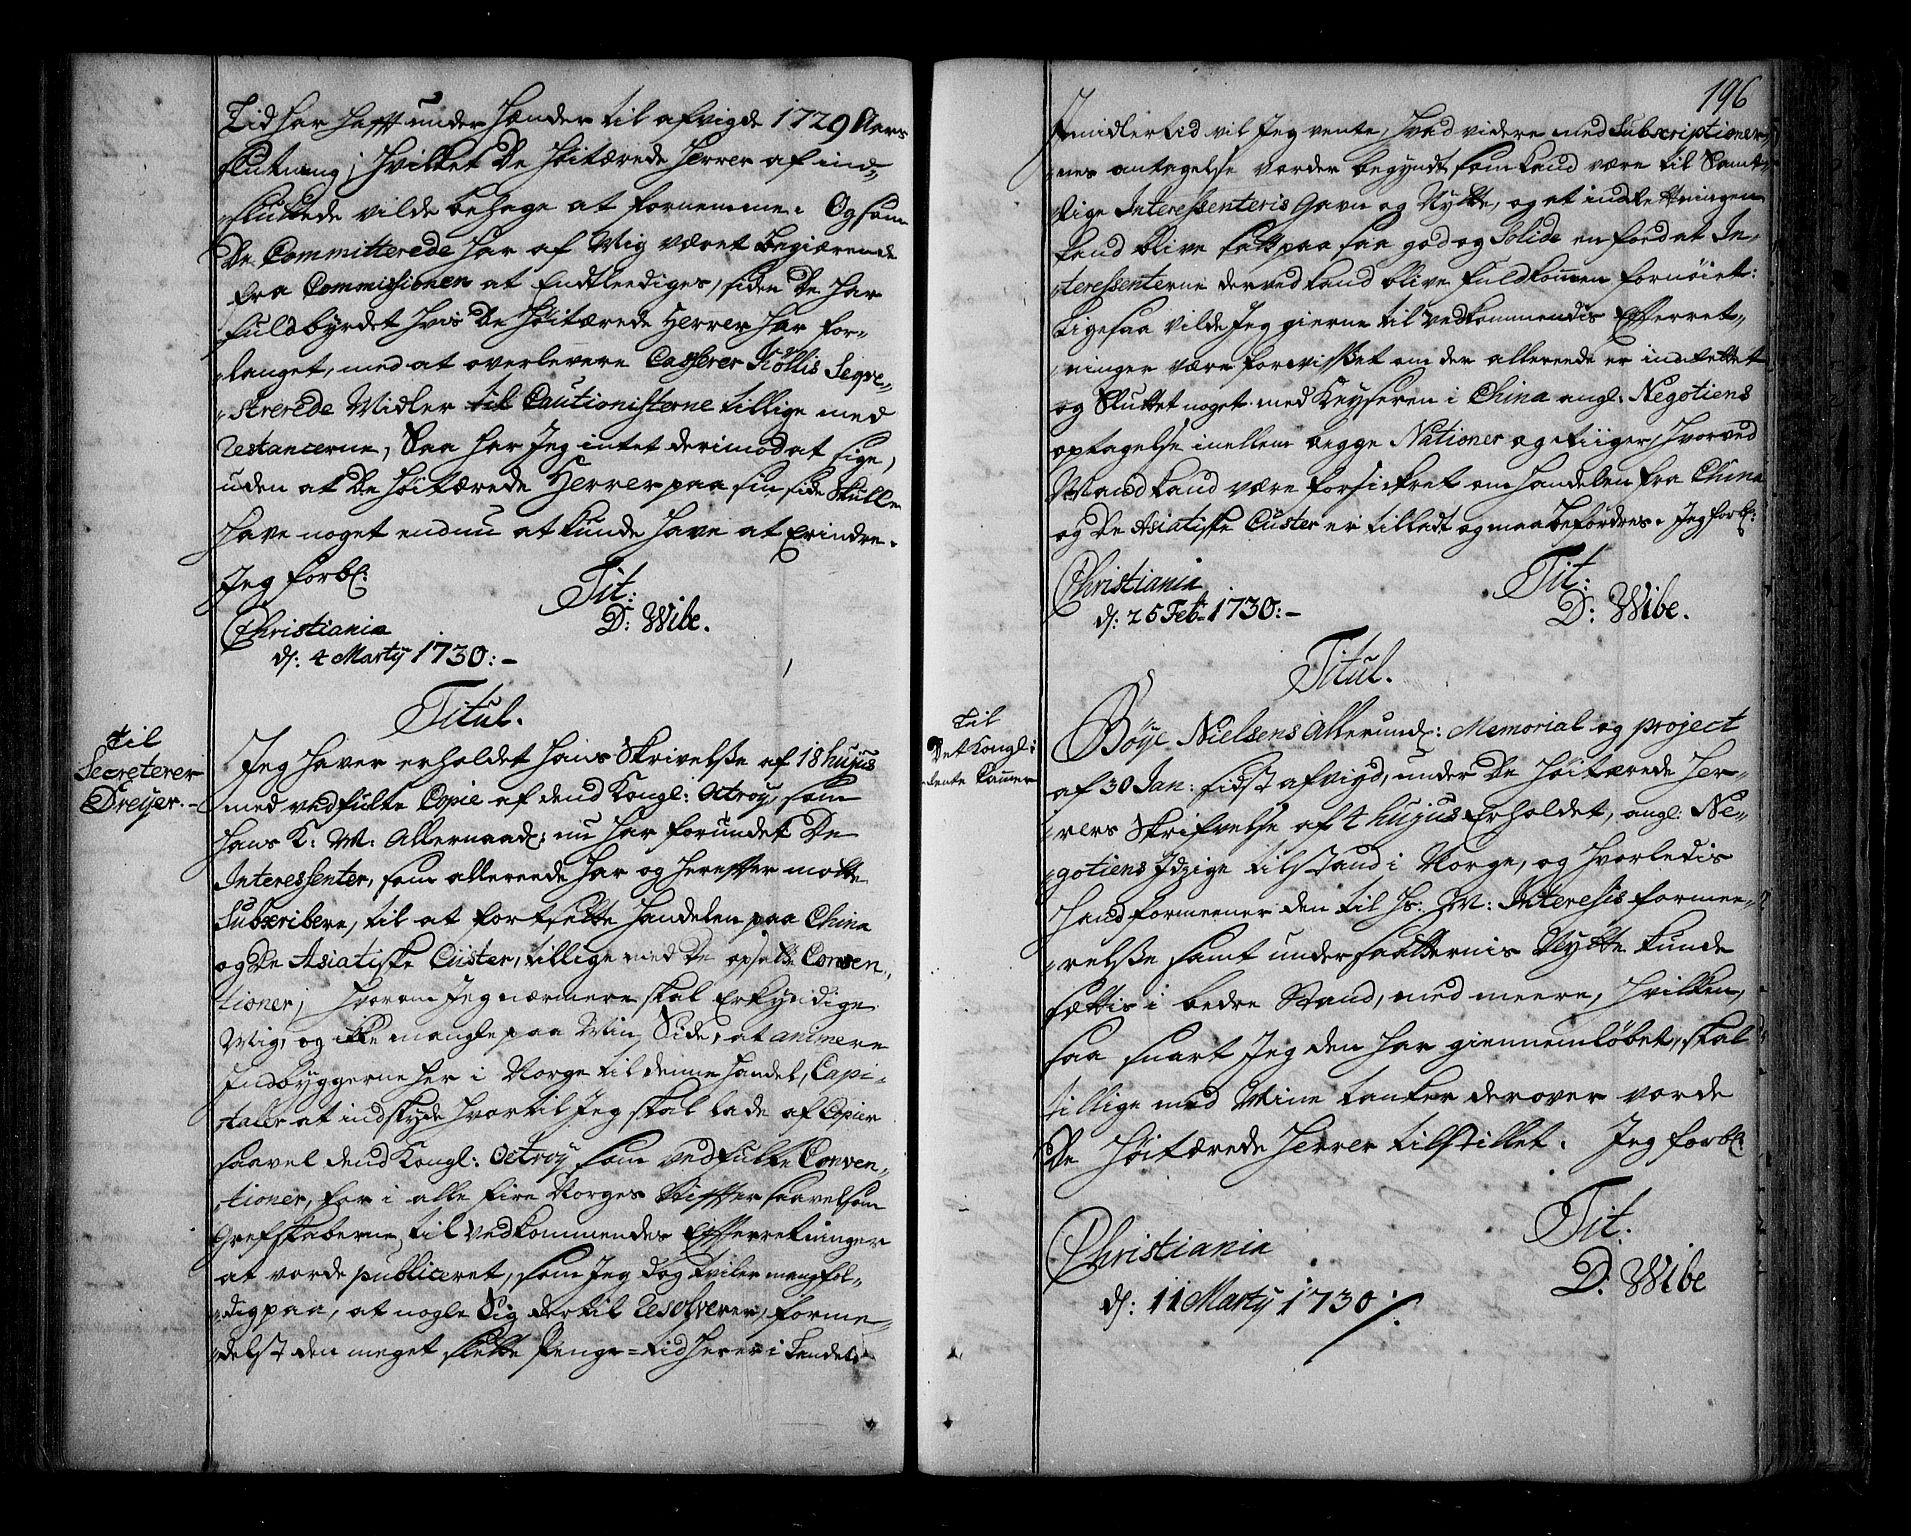 Tid har hafft under Hænder til afvigde 1729 Aars
Slutning; hvilket De Höitærede Herrer af ind-
sluttede vilde behage at fornemme. Og som
De Committerede har af Mig været begiærende
fra Commissionen at Endtleediges, siden De har
fuldbyrdet hvis De Höitærede Herrer har for-
langet, med at overlevere Casserer Köllis Seqve-
strerede Midler til Cautionisterne tillige med
Restancerne, Saa har Jeg intet derimod at sige,
uden at De Höitærede Herrer paa sin side skulle
have noget endnu at kunde have at Erindre.
Jeg forbl:
Tit:
D: Wibe.
Christiania
d: 4 Martij 1730:-
Titul.
Til
Secreterer
Dreyer.-
Jeg haver erholdet hans Skrivelse af 18 hujus
med vedfulte Copie af dend Kongl: Octroy, som
Hans K: M: Allernaad: nu har forundet De
Interessenter, som allereede har og herefter motte
Subscribere, til at fortsette Handelen paa China
og De Asiatiske Cüster, tillige med De opsatte Conven-
tioner; hvorom Jeg nærmere skal Erkyndige
Mig, og ikke mangle paa Min Side, at animere
Indbyggerne her i Norge til denne Handel, Capi-
taler at indskyde hvortil Jeg skal lade af Copier
saavel dend Kongl: Octroy som vedfulte Conven-
tioner, for i alle fire Norges Stiffter saavelsom
Grefskaberne til vedkommendes Efferretninger
at vorde publiceret, som Jeg dog tviler mangfol-
dig paa, at nogle Sig dertil Resolverer, forme-
delst den meget slette Penge-tid her er i Landet
196
Imidlertid vil Jeg vente, hvad videre med Subscriptioner-
nes antagelse vorder begyndt som kand være til Samt-
lige Interessenteris Gavn og Nytte, og at indretningen
kand blive satt paa saa god og Solide en fod at In-
teressenterne derved kand blive fuldkommen fornöiet:
Ligesaa vilde Jeg gierne til vedkommendis Efferret-
ninger være forvisset om der allereede er indrettet
og Sluttet noget med Keyseren i China angl: Negotiens
optagelse imellem begge Nationer og Riiger, hvorved
Mand kand være forsickret om Handelen fra China
og De Asiatiske Cüster er tilladt og maa befordres. Jeg forbl:
Tit:
D: Wibe.
Christiania
d: 25 Febr 1730:-
Titul.
Til
Det Kongl:
Rente Camer
Böye Nielsens Allerund: Memorial og project
af 30 Jan: sidst afvigd, under De Höitærede Her-
rers Skrifvelse af 4 hujus Erholdet, angl: Ne-
gotiens Idzige tilstand i Norge, og hvorledis
Hand formeener den til Hs: M: Interesses formee-
relse samt undersaatternis Nytte kunde
sættis i bedre Stand, med meere, hvilken,
saa snart Jeg den har giennemlöbet, skal
tillige med Mine tanker derover vorde
De Höitærede Herrer tilstillet. Jeg forbl:
Tit.
D: Wibe
Christiania
d: 11 Martij 1730: